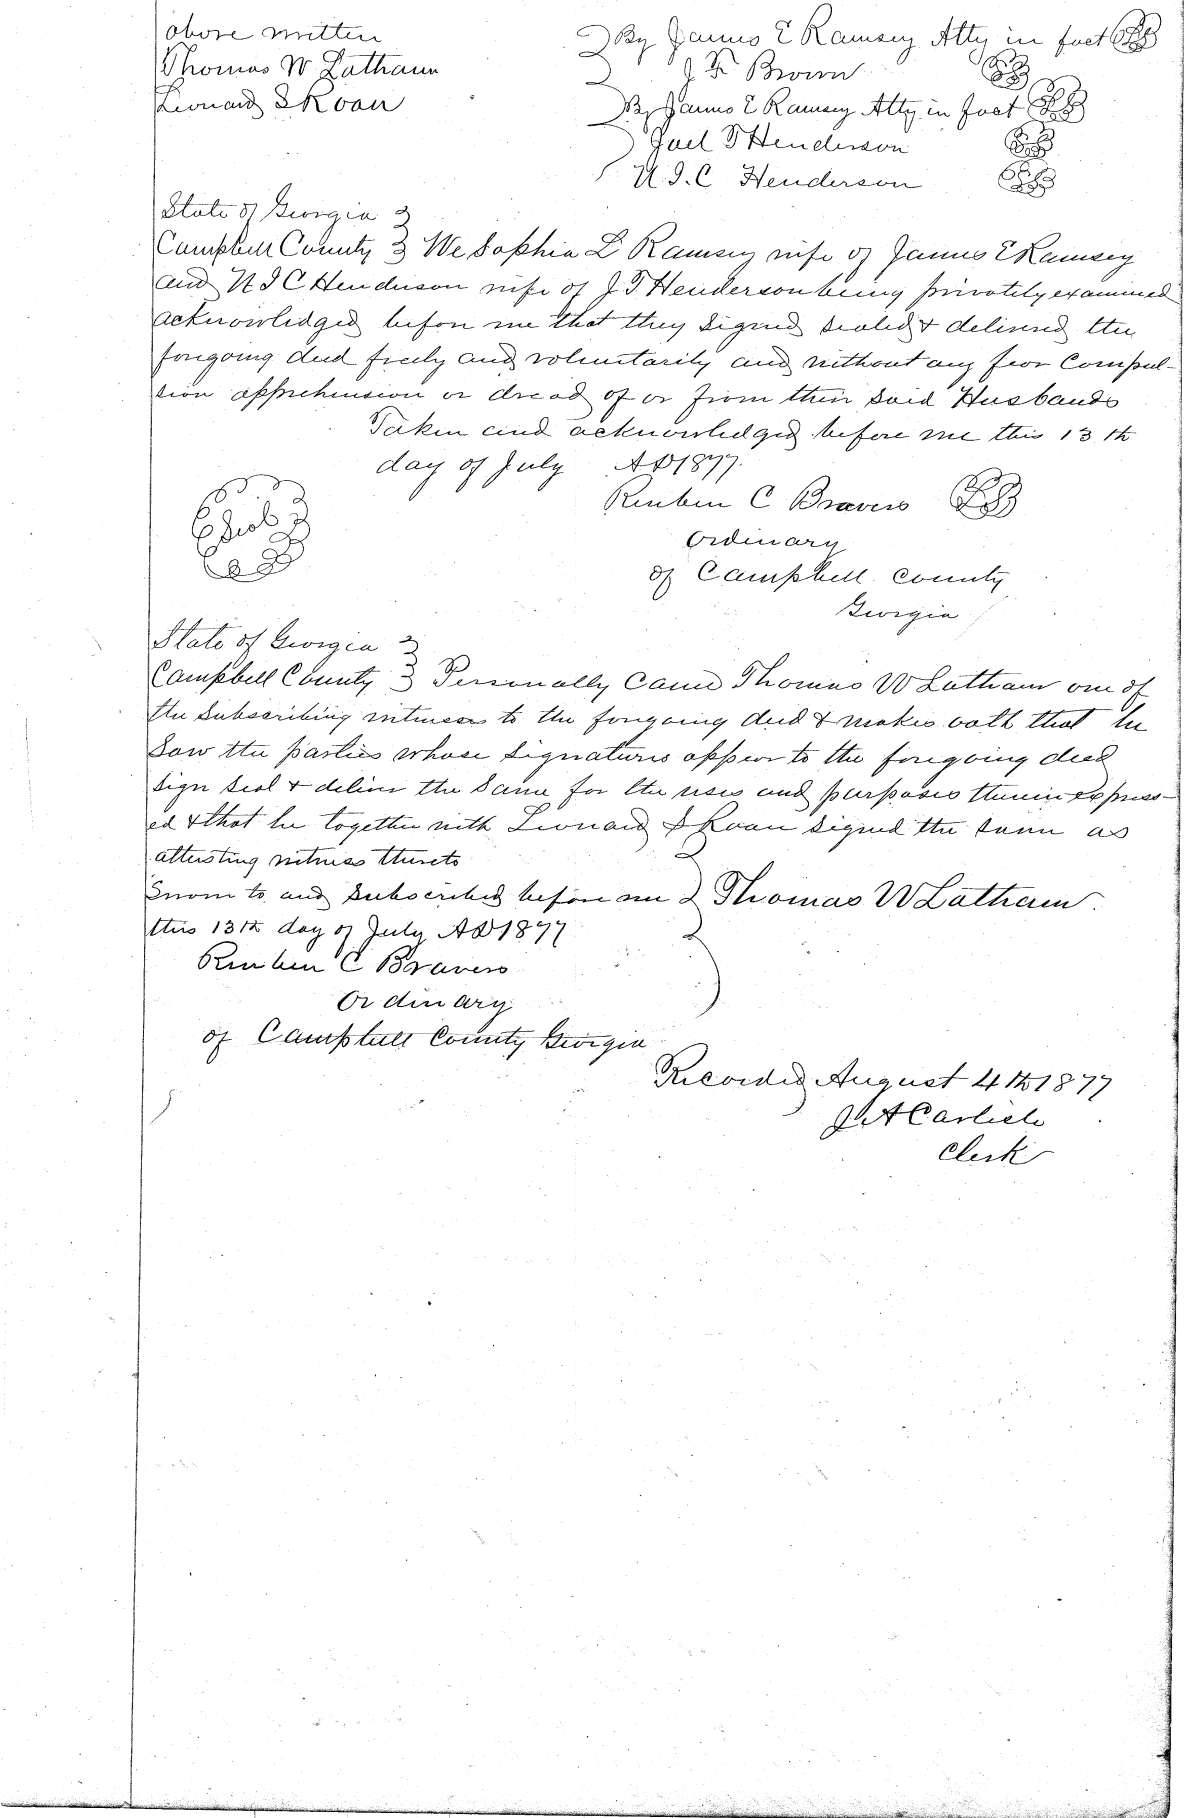 above written
Thomas W Latham
Leonard S Roan
By James E Ramsey Atty in fact
J F Brown
By James E Ramsey Atty in fact
Joel T Henderson
N. J. C Henderson
State of Georgia
Campbell County We Sophia L Ramsey wife of James E Ramsey
and N J C Henderson wife of J T Henderson being privately examined
acknowledged before me that they signed sealed & delivered the
foregoing deed freely and voluntarily and without any fear Compul-
sion apprehension or dread of or from their said Husbands
Taken and acknowledged before me this 13th
day of July AD 1877.
Reuben C Beavers
Seal
Ordinary
of Campbell County
Georgia
State of Georgia
Campbell County Personally came Thomas W Latham one of
the Subscribing witnesses to the foregoing deed & makes oath that he
saw the parties whose signatures appear to the foregoing deed
sign seal & deliver the same for the uses and purposes therein express-
ed & that he together with Leonard S Roan signed the same as
attesting witness thereto
Sworn to and Subscribed before me Thomas W Latham.
this 13th day of July AD 1877
Reuben C Beavers
Ordinary
of Campbell County Georgia
Recorded August 4th 1877
J A Carlisle
Clerk